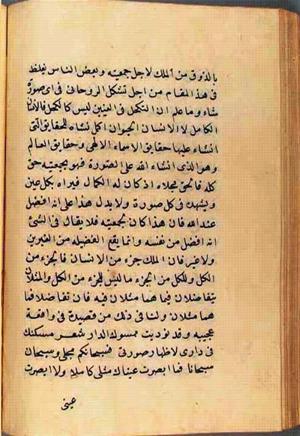 بالذوق من الملك لاجل جمعيته وبعض الناس يغلط
في هذا المقام من اجل تشكل الروحاني في اي صورة
شاء وما علم ان التكحل في العينين ليس كالكحل فالانسان
الكامل لا الانسان الحيوان اكمل نشاه للحقايق التي
انشاء عليها حقايق الاسماء الالهي وحقايق العالم
وهو الذي انشاء الله على الصورة فهو بجمعيته حق
كله فالحق مجلاه اذ كان له الكمال فيراه بكل عين
ويشهده في كل صورة ولا يدل هذا على انه افضل
عند الله فان هذا كان بجمعيته فلا يقال في الشئ
انه افضل من نفسه وانما يقع الفضيله من الغيرين
ولا غير فان الملك جزء من الانسان فالجزء من
الكل والكل من الجزء ما ليس للجزء من الكل والمثلان
يتفاضلان فيما هما مثلان فيه فان تفاضلا فما
هما مثلان ولنا في ذلك من قصيدة في واقعة
عجيبه وقد نوديت ممسوك الدار شعر مسكنك
في داري لاظهار صورتي فسبحانكم مجلى وسبحان
سبحانا فما ابصرت عيناك مثلي كاملا ولا ابصرت
عيني